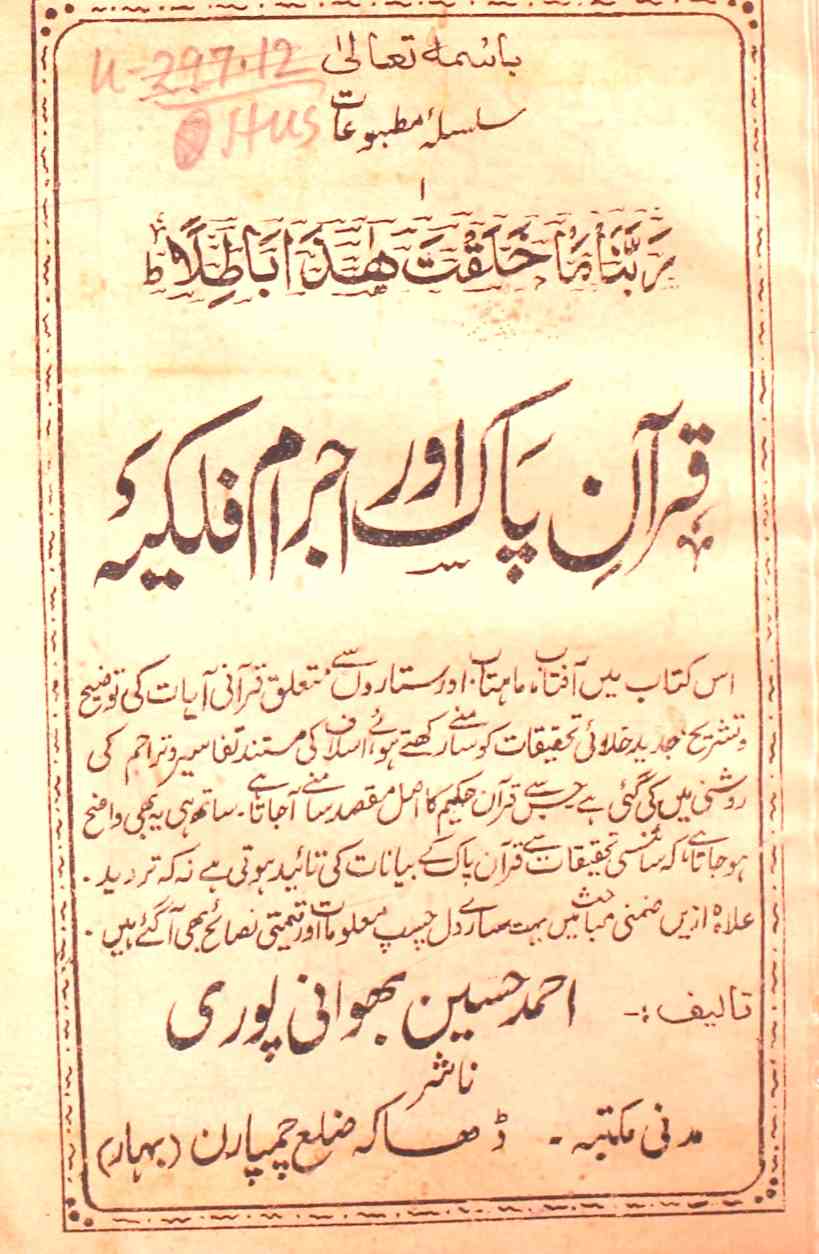 باسمہ تعالیٰ
U-297.12
HUS
سلسلۂ مطبوعات
۱
رَبَّنَا مَا خَلَقْتَ هٰذَا بَاطِلًا ط
قرآنِ پاک اور اجرام فلکیہ
اس کتاب میں آفتاب، ماہتاب، اور ستاروں سے متعلق قرآنی آیات کی توضیح
وتشریح، جدید خلائی تحقیقات کو سامنے رکھتے ہوئے، اسلاف کی مستند تفاسیر و تراجم کی
روشنی میں کی گئی ہے جس سے قرآن حکیم کا اصل مقصد سامنے آجاتا ہے۔ ساتھ ہی یہ بھی واضح
ہوجاتا ہے، کہ سائنسی تحقیقات سے قرآن پاک کے بیانات کی تائید ہوتی ہے نہ کہ تردید۔
علاوہ ازیں ضمنی مباحث میں بہت سارے دل چسپ معلومات اور قیمتی نصائح بھی آگئے ہیں۔
تالیف:- احمد حسین بھوانی پوری
ناشر
مدنی مکتبہ - ڈھاکہ ضلع چمپارن (بہار)